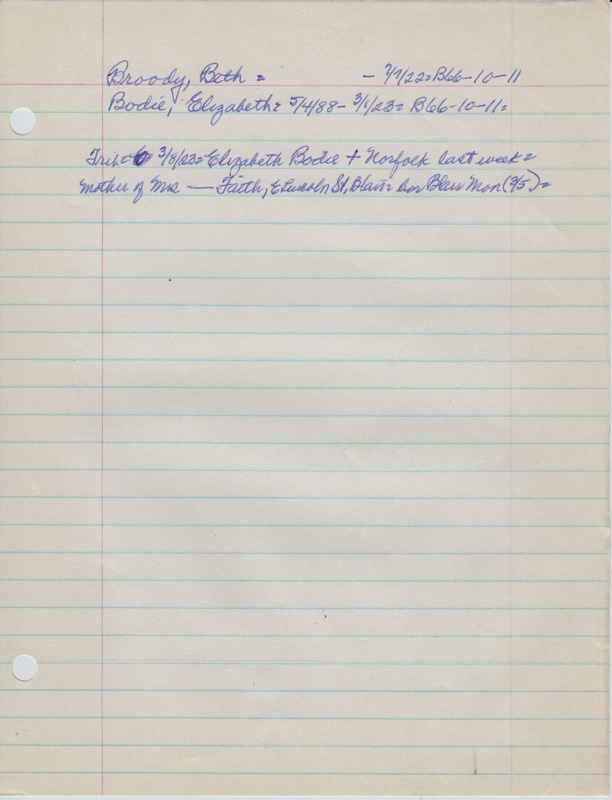 Broody, Beth = - 7/7/22=B66-10-11
Bodie, Elizabeth= 5/4/88- 3/1/23= B66-10-11=
Trib= 3/8/23=Elizabeth Bodie + Norfolk last week=
mother of Mrs — Faith, E Lincoln St, Blair= bur Blair Mon (3/5)=